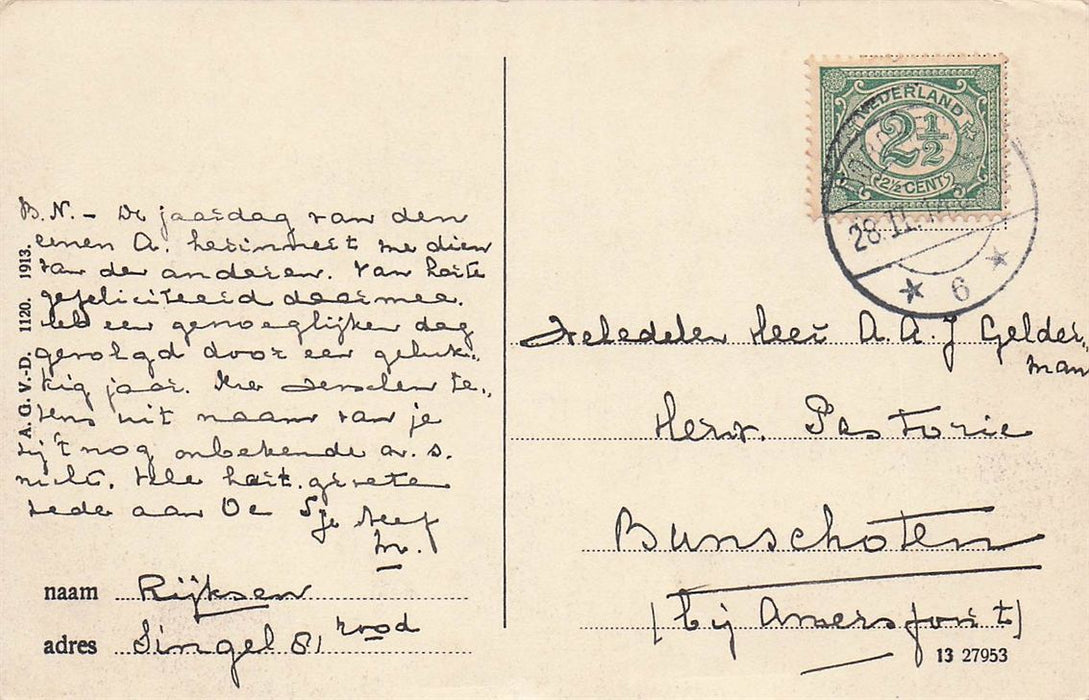 B.N. – De jaardag van den
eenen A. herinnert me dien
van de anderen. Van harte
gefeliciteerd daarmee.
Heb een genoeglijken dag
gevolgd door een geluk-
kig jaar. We wenschen te-
vens uit naam van je
zij 't nog onbekende a.s.
nicht. Vele hart. groeten
mede aan Oe je neef
M.
A. G. V.-D. 1120. 1913.
naam Rijksen
adres Singel 81 rood
NEDERLAND
2½
2½ CENT
28.11.
6
Weledelen Heer A. A. J Gelder-
man
Herv. Pastorie
Bunschoten
(bij Amersfoort)
13 27953